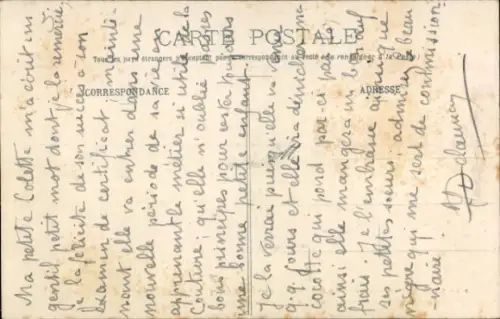 CARTE POSTALE
Tous les pays étrangers n'acceptent pas la correspondance au recto (Se renseigner à la Poste)
CORRESPONDANCE
ADRESSE
Ma petite Colette m'a écrit un
gentil petit mot dont je la remercie,
je la félicite de son succès à son
Examen de certificat mainte-
nant elle va entrer dans une
nouvelle période de sa vie en
apprenant le métier si utile de la
Couture; qu'elle n'oublie pas les
bons principes pour rester toujours
une bonne petite enfant.
Je la verrai puisqu'elle va venir
q.q. jours et elle ira dénicher ma
cocotte qui pond par-ci par là
ainsi elle mangera un bon œuf
frais. Je l'embrasse ainsi que
ses petites sœurs; admirez le beau
nègre qui me sert de commission-
naire
Delaunay